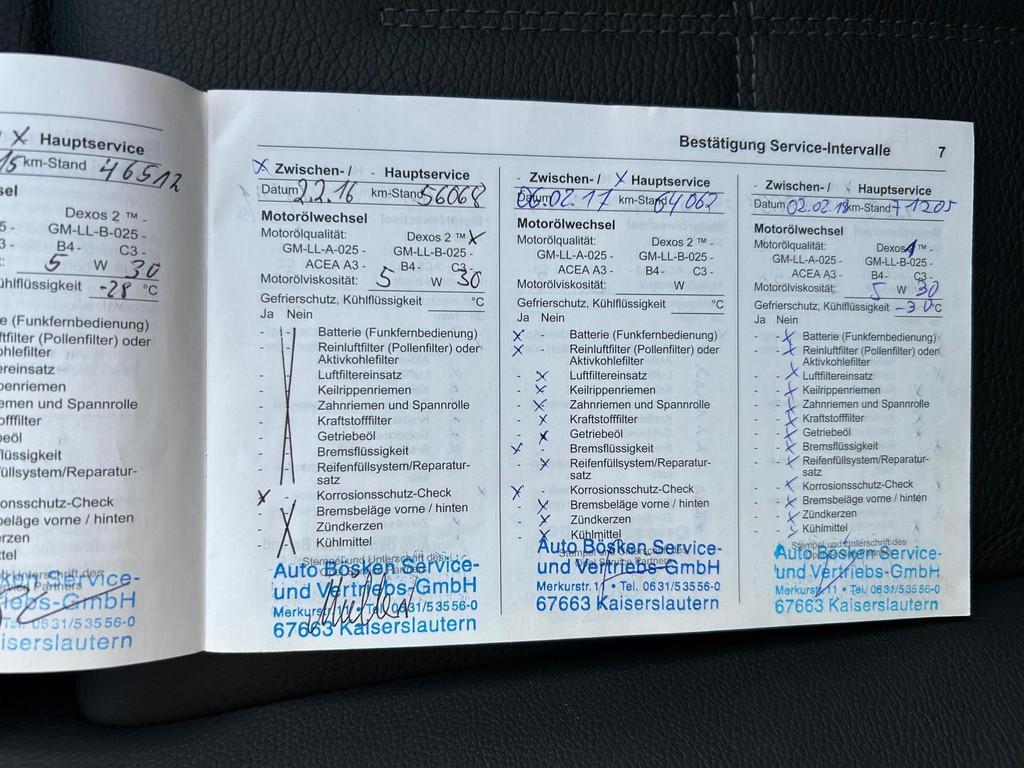 X Hauptservice
15 km-Stand 46512
sel
Dexos 2 ™ -
5 - GM-LL-B-025 -
3 - B4- C3 -
: 5 W 30
ühlflüssigkeit -28 °C
e (Funkfernbedienung)
tfilter (Pollenfilter) oder
ohlefilter
ereinsatz
penriemen
emen und Spannrolle
offfilter
eöl
lüssigkeit
üllsystem/Reparatur-
onsschutz-Check
eläge vorne / hinten
rzen
tel
Service-
iebs-GmbH
Tel. 0631/53556-0
iserslautern
Bestätigung Service-Intervalle 7
X Zwischen- / - Hauptservice
Datum 2.2.16 km-Stand 56068
Motorölwechsel
Motorölqualität: Dexos 2 ™ X
GM-LL-A-025 - GM-LL-B-025 -
ACEA A3 - B4- C3 -
Motorölviskosität: 5 W 30
Gefrierschutz, Kühlflüssigkeit °C
Ja Nein
- - Batterie (Funkfernbedienung)
- - Reinluftfilter (Pollenfilter) oder
Aktivkohlefilter
- Luftfiltereinsatz
- Keilrippenriemen
- Zahnriemen und Spannrolle
- Kraftstofffilter
- Getriebeöl
- Bremsflüssigkeit
- Reifenfüllsystem/Reparatur-
satz
X - Korrosionsschutz-Check
- Bremsbeläge vorne / hinten
- Zündkerzen
- Kühlmittel
Stempel und Unterschrift des
Auto Bösken Service-
und Vertriebs-GmbH
Merkurstr. 11 • Tel. 0631/53556-0
67663 Kaiserslautern
- Zwischen- / X Hauptservice
Datum 06.02.17 km-Stand 64062
Motorölwechsel
Motorölqualität: Dexos 2 ™ -
GM-LL-A-025 - GM-LL-B-025 -
ACEA A3 - B4- C3 -
Motorölviskosität: W
Gefrierschutz, Kühlflüssigkeit °C
Ja Nein
X - Batterie (Funkfernbedienung)
X - Reinluftfilter (Pollenfilter) oder
Aktivkohlefilter
- X Luftfiltereinsatz
- X Keilrippenriemen
- X Zahnriemen und Spannrolle
- X Kraftstofffilter
- X Getriebeöl
X - Bremsflüssigkeit
- X Reifenfüllsystem/Reparatur-
satz
X - Korrosionsschutz-Check
- X Bremsbeläge vorne / hinten
- X Zündkerzen
- X Kühlmittel
Auto Bösken Service-
und Vertriebs-GmbH
Merkurstr. 11 • Tel. 0631/53556-0
67663 Kaiserslautern
- Zwischen- / Hauptservice
Datum 02.02.18 km-Stand 71205
Motorölwechsel
Motorölqualität: Dexos 1 ™ -
GM-LL-A-025 - GM-LL-B-025 -
ACEA A3 - B4- C3 -
Motorölviskosität: 5 W 30
Gefrierschutz, Kühlflüssigkeit -30 °C
Ja Nein
- X Batterie (Funkfernbedienung)
- X Reinluftfilter (Pollenfilter) oder
Aktivkohlefilter
- X Luftfiltereinsatz
- X Keilrippenriemen
- X Zahnriemen und Spannrolle
- X Kraftstofffilter
- X Getriebeöl
- X Bremsflüssigkeit
- X Reifenfüllsystem/Reparatur-
satz
- X Korrosionsschutz-Check
- X Bremsbeläge vorne / hinten
- X Zündkerzen
- X Kühlmittel
Stempel und Unterschrift des
Auto Bösken Service-
und Vertriebs-GmbH
Merkurstr. 11 • Tel. 0631/53556-0
67663 Kaiserslautern